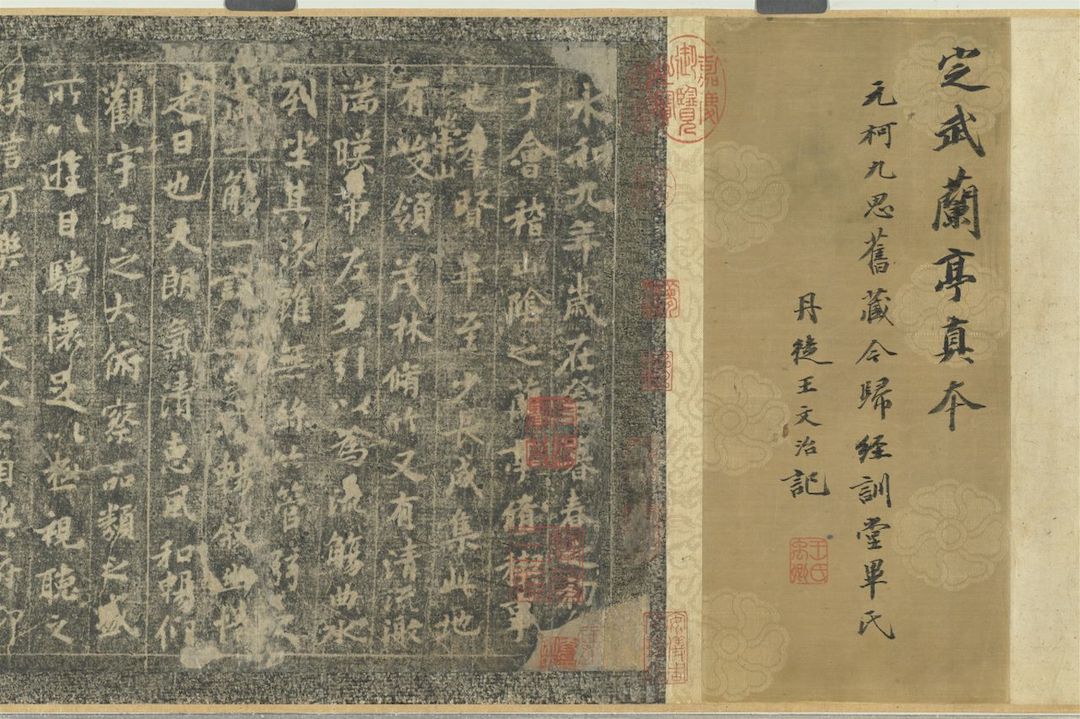 定武蘭亭真本
元柯九思舊藏今歸經訓堂畢氏
丹徒王文治記
王氏禹卿
嘉慶御覽之寶
永和九年歲在癸丑暮春之初
于會稽山陰之蘭亭脩稧事
也羣賢畢至少長咸集此地
崇山
有峻領茂林脩竹又有清流激
湍暎帶左右引以為流觴曲水
列坐其次雖無絲竹管弦之
盛一觴一詠亦足以暢敘幽情
是日也天朗氣清惠風和暢仰
觀宇宙之大俯察品類之盛
所以遊目騁懷足以極視聽之
娛信可樂也夫人之相與俯仰